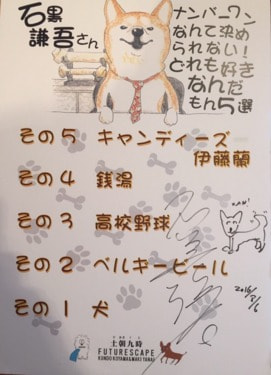 石黒
謙吾さん
ナンバーワン
なんて決め
られない!
どれも好き
なんだ
もん5選
その5 キャンディーズ
伊藤蘭
その4 銭湯
その3 高校野球
その2 ベルギービール
その1 犬
WAN!
2016/2/6
土朝九時
FUTURESCAPE
KUNDO KOYAMA&MAKI TANAI